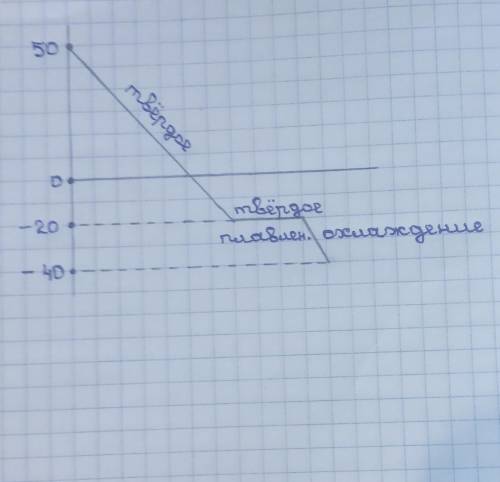 50
твёрдое
0
твёрдое
-20
плавлен. охлаждение
-40